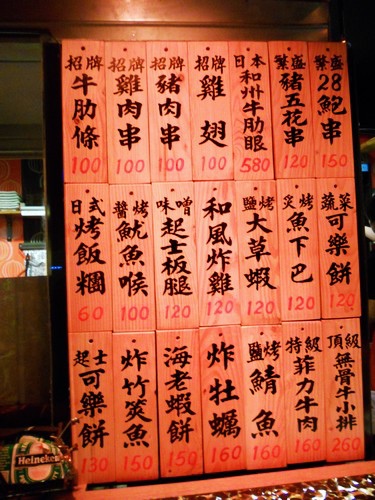 招牌
牛肋條
100
招牌
雞肉串
100
招牌
豬肉串
100
招牌
雞翅
100
日本
和州牛肋眼
580
繁盛
豬五花串
120
繁盛
28鮑串
150
日式
烤飯糰
60
醬烤
魷魚喉
100
味噌
起士板腿
120
和風炸雞
120
鹽烤
大草蝦
120
炙烤
魚下巴
120
蔬菜
可樂餅
120
起士
可樂餅
130
炸竹筴魚
150
海老蝦餅
150
炸牡蠣
160
鹽烤
鯖魚
160
特級
菲力牛肉
160
頂級
無骨牛小排
260
Heineken